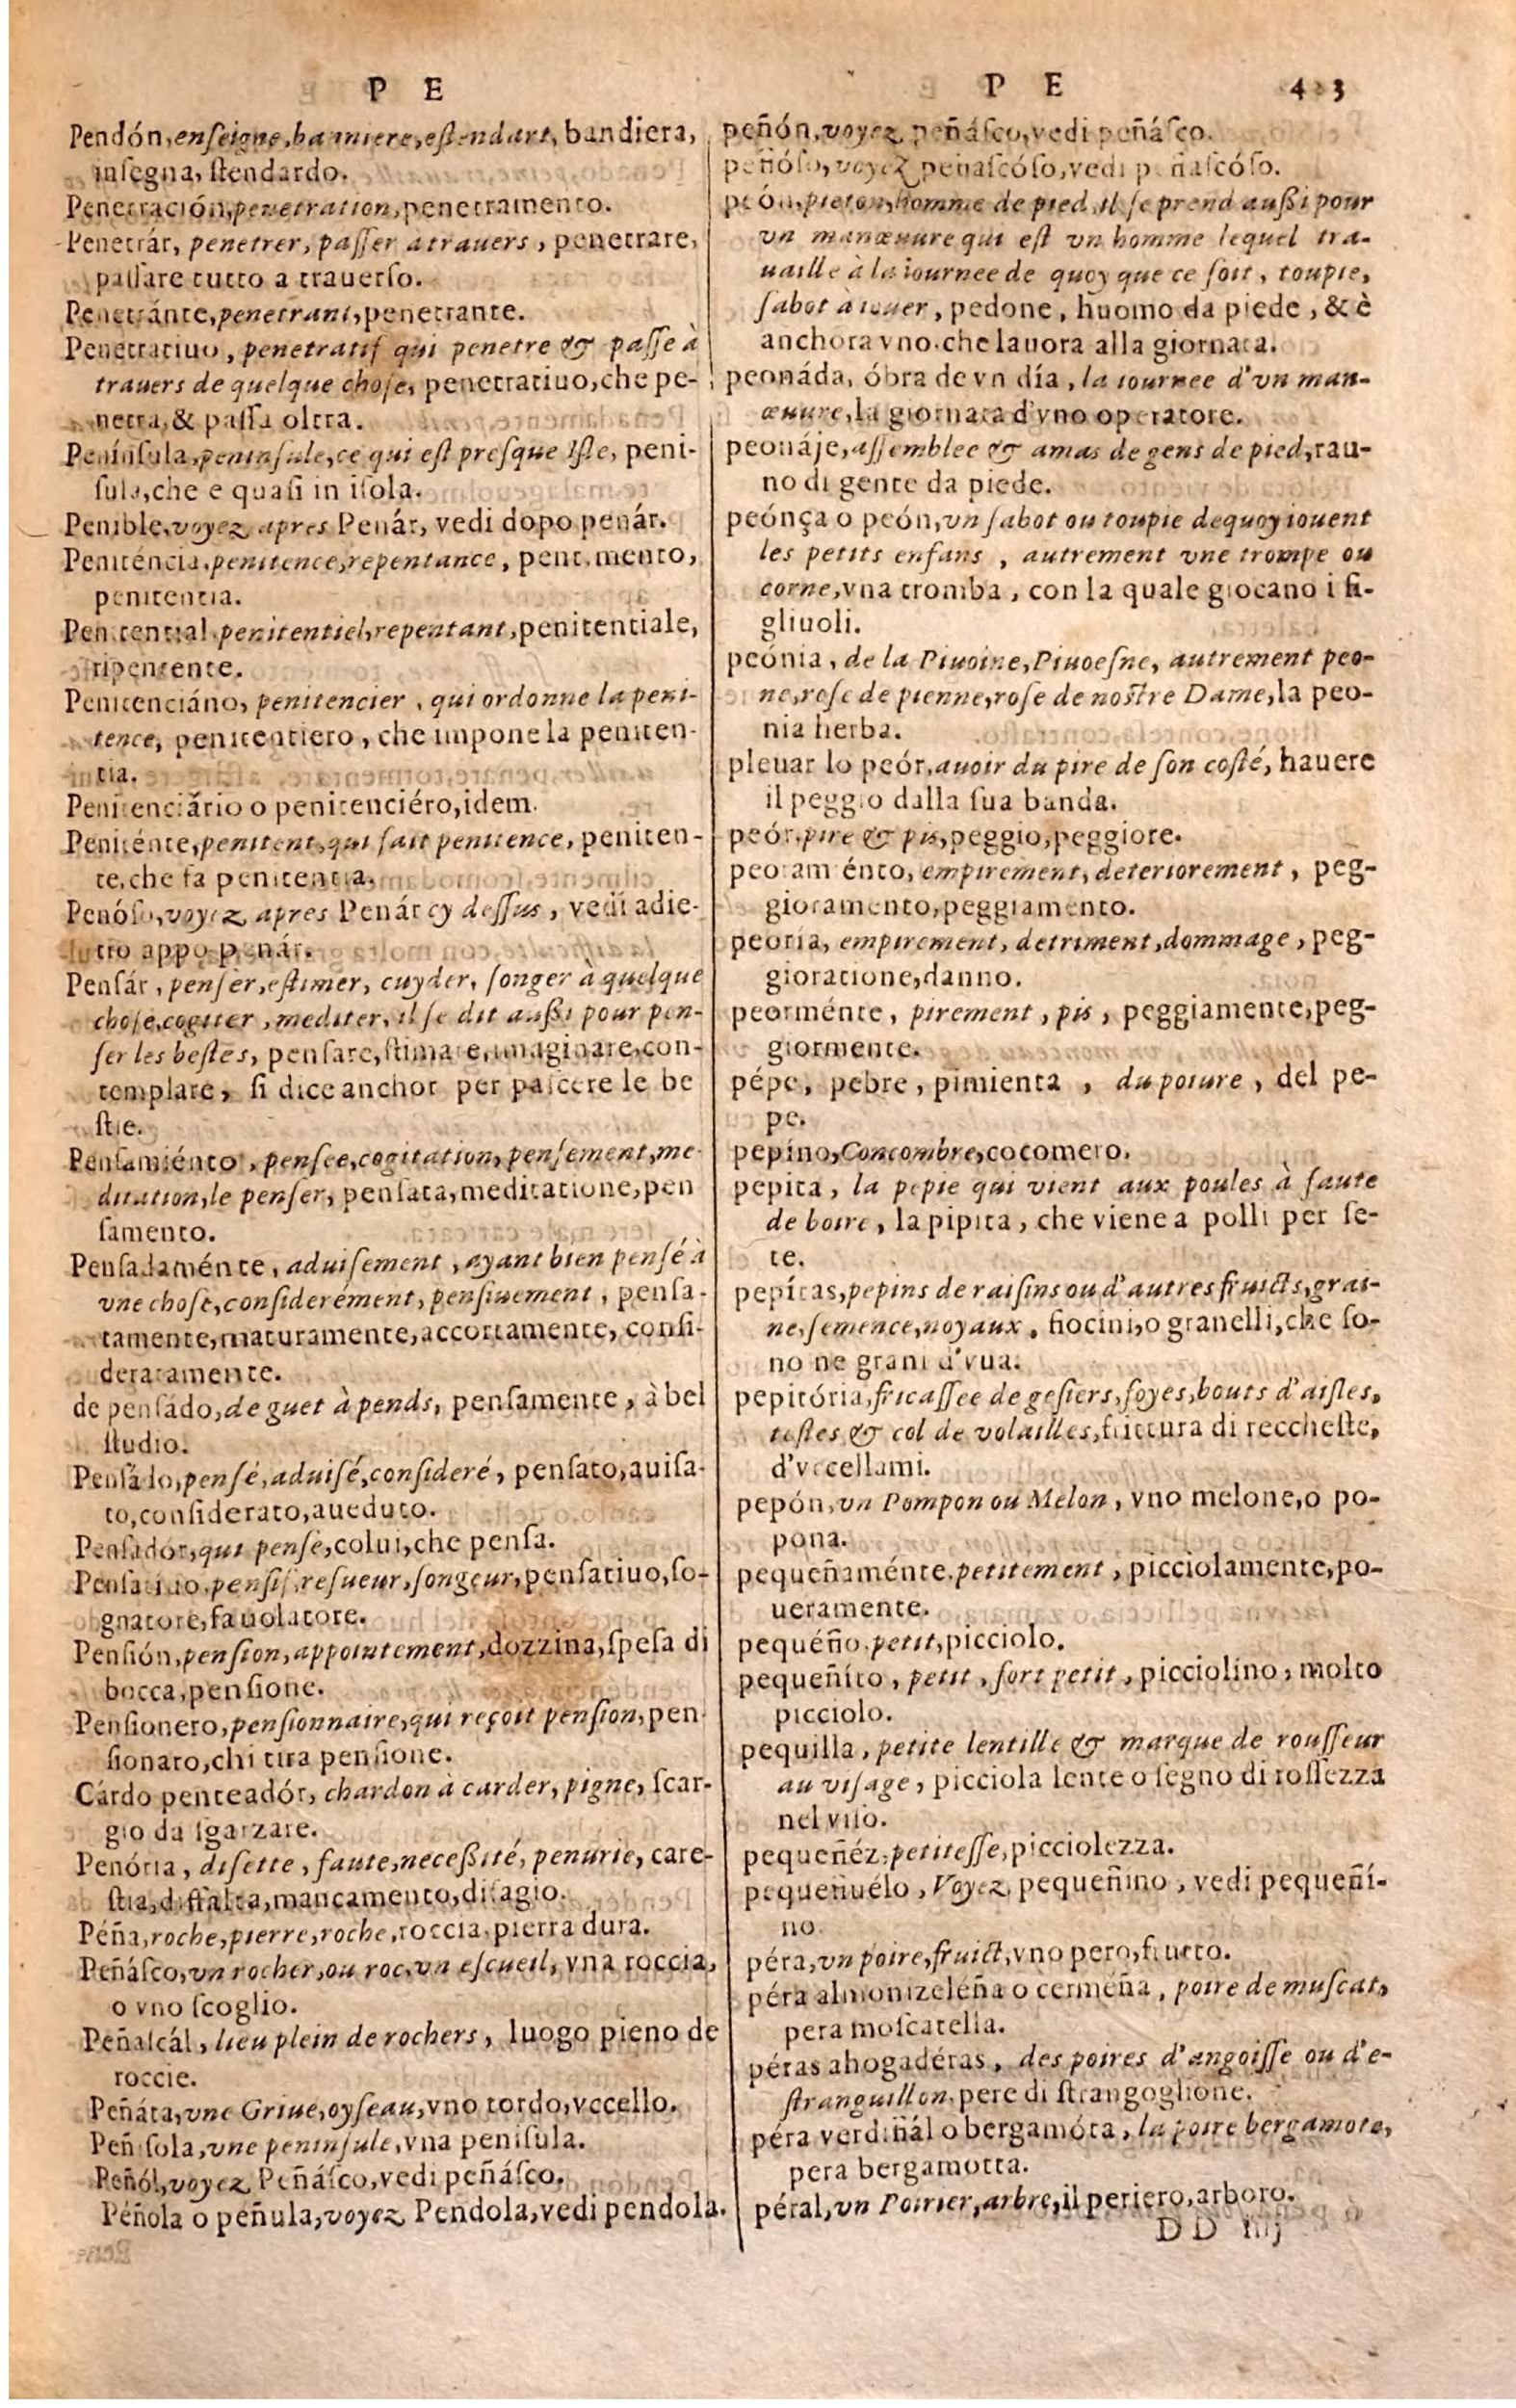 P E
Pendón, enseigne, banniere, estendart, bandiera,
insegna, ſtendardo.
Penetración, penetration, penetramento.
Penetrár, penetrer, paſſer a trauers, penetrare,
paſſare tutto a trauerſo.
Penetránte, penetrant, penetrante.
Penetratiuo, penetratif qui penetre & paſſe à
trauers de quelque choſe, penetratiuo, che pe-
netra, & paſſa oltra.
Penínſula, peninſule, ce qui eſt preſque Iſle, peni-
ſula, che e quaſi in iſola.
Penible, voyez apres Penár, vedi dopo penár.
Peniténcia, penitence, repentance, pentimento,
penitentia.
Penitential, penitentiel, repentant, penitentiale,
ripentente.
Penitenciáno, penitencier, qui ordonne la peni-
tence, penitentiero, che impone la peniten-
tia.
Penitenciário o penitenciéro, idem.
Peniténte, penitent, qui fait penitence, peniten-
te, che fa penitentia.
Penóſo, voyez apres Penár cy deſſus, vedi adie-
tro appo penár.
Penſár, penſer, eſtimer, cuyder, ſonger à quelque
choſe, cogiter, mediter, il ſe dit auſſi pour pen-
ſer les beſtes, penſare, ſtimare, imaginare, con-
templare, ſi dice anchor per paſcere le be
ſtie.
Penſamiénto, penſee, cogitation, penſement, me-
ditation, le penſer, penſata, meditatione, pen
ſamento.
Penſadaménte, aduiſement, ayant bien penſé à
vne choſe, conſiderément, penſiuement, penſa-
tamente, maturamente, accortamente, conſi-
deratamente.
de penſádo, de guet à pends, penſamente, à bel
ſtudio.
Penſádo, penſé, aduiſé, conſideré, penſato, auiſa-
to, conſiderato, aueduto.
Penſadór, qui penſe, colui, che penſa.
Penſatiuo, penſif, reſueur, ſongeur, penſatiuo, ſo-
gnatore, fauolatore.
Penſión, penſion, appointement, dozzina, ſpeſa di
bocca, penſione.
Penſionero, penſionnaire, qui reçoit penſion, pen-
ſionato, chi tira penſione.
Cárdo penteadór, chardon à carder, pigne, ſcar-
gio da ſgarzare.
Penória, diſette, faute, neceſſité, penurie, care-
ſtia, diffalta, mancamento, diſagio.
Péña, roche, pierre, roche, roccia, pierra dura.
Peñáſco, vn rocher, ou roc, vn eſcueil, vna roccia,
o vno ſcoglio.
Peñaſcál, lieu plein de rochers, luogo pieno de
roccie.
Peñáta, vne Griue, oyſeau, vno tordo, vccello.
Peñiſola, vne peninſule, vna peniſula.
Peñól, voyez Peñáſco, vedi peñáſco.
Péñola o péñula, voyez Pendola, vedi pendola.
P E 423
peñón, voyez peñáſco, vedi peñáſco.
peñóſo, voyez peñaſcóſo, vedi peñaſcóſo.
peón, pieton, homme de pied, il ſe prend auſſi pour
vn manœuure qui eſt vn homme lequel tra-
uaille à la iournee de quoy que ce ſoit, toupie,
ſabot à iouer, pedone, huomo da piede, & è
anchora vno che lauora alla giornata.
peonáda, óbra de vn día, la iournee d'vn man-
œuure, la giornata d'vno operatore.
peonáje, aſſemblee & amas de gens de pied, rau-
no di gente da piede.
peónça o peón, vn ſabot ou toupie dequoy iouent
les petits enfans, autrement vne trompe ou
corne, vna tromba, con la quale giocano i fi-
gliuoli.
peónia, de la Piuoine, Piuoeſne, autrement peo-
ne, roſe de pienne, roſe de noſtre Dame, la peo-
nia herba.
pleuar lo peór, auoir du pire de ſon coſté, hauere
il peggio dalla ſua banda.
peór, pire & pis, peggio, peggiore.
peoramiénto, empirement, deteriorement, peg-
gioramento, peggiamento.
peoria, empirement, detriment, dommage, peg-
gioratione, danno.
peorménte, pirement, pis, peggiamente, peg-
giormente.
pépe, pebre, pimienta, du poiure, del pe-
pe.
pepíno, Concombre, cocomero.
pepita, la pepie qui vient aux poules à faute
de boire, la pipita, che viene a polli per ſe-
te.
pepítas, pepins de raiſins ou d'autres fruicts, grai-
ne, ſemence, noyaux, fiocini, o granelli, che ſo-
no ne grani d'vua.
pepitória, fricaſſee de geſiers, foyes, bouts d'aiſles,
teſtes & col de volailles, frittura di reccheſte,
d'vccellami.
pepón, vn Pompon ou Melon, vno melone, o po-
pona.
pequeñaménte, petitement, picciolamente, po-
ueramente.
pequéño, petit, picciolo.
pequeñíto, petit, fort petit, picciolino, molto
picciolo.
pequilla, petite lentille & marque de rouſſeur
au viſage, picciola lente o ſegno di roſſezza
nel viſo.
pequeñéz, petiteſſe, picciolezza.
pequeñuélo, Voyez pequeñino, vedi pequeñí-
no.
péra, vn poire, fruict, vno pero, frutto.
péra almonizeléña o cerméña, poire de muſcat,
pera moſcatella.
péras ahogadéras, des poires d'angoiſſe ou d'e-
ſtranguillon, pere di ſtrangoglione.
péra verdiñál o bergamóta, la poire bergamote,
pera bergamotta.
péral, vn Poirier, arbre, il periero, arboro.
DD iiij